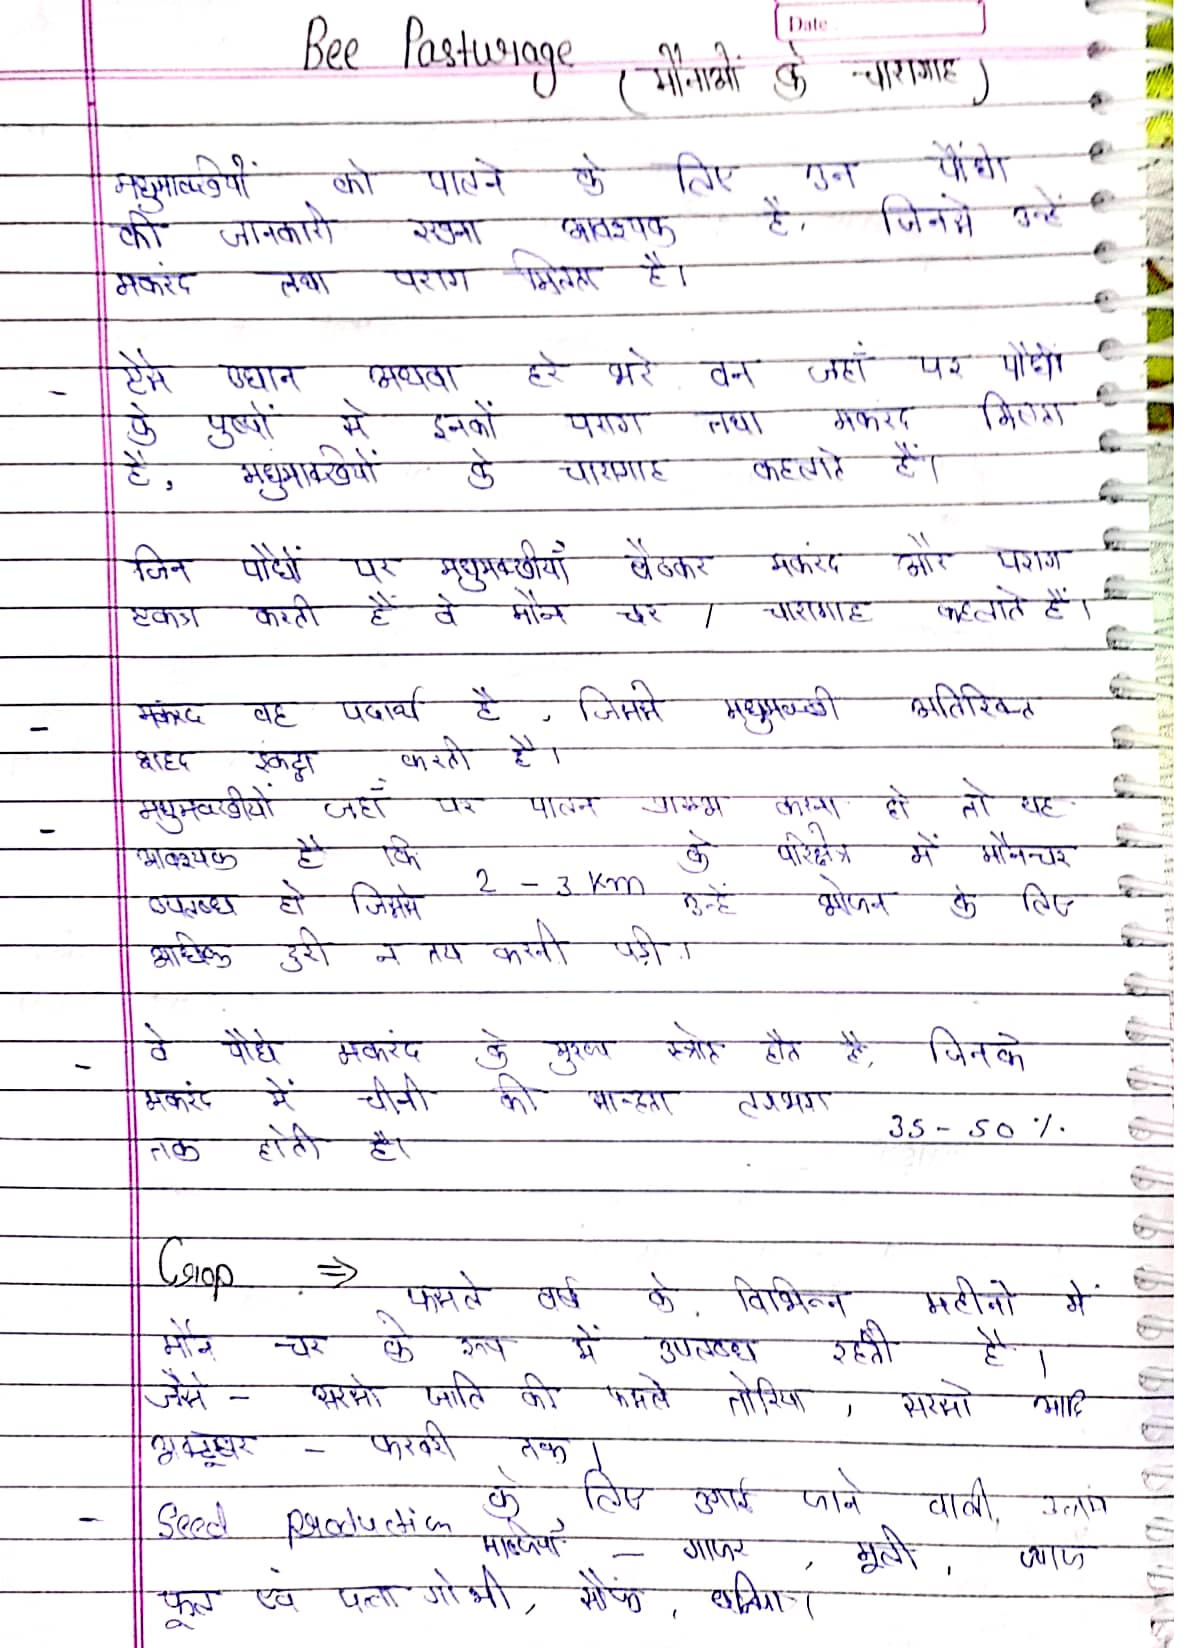 Date
Bee Pasturage
(मौनाओं के चारागाह)
मधुमक्खियों को पालने के लिए उन पौधो
की जानकारी रखना आवश्यक है, जिनसे उन्हें
मकरंद तथा पराग मिलता है।
- ऐसे उधान अथवा हरे भरे वन जहाँ पर पौधों
के पुष्पों से इनकों पराग तथा मकरंद मिलता
है, मधुमक्खियों के चारागाह कहलाते हैं।
जिन पौधों पर मधुमक्खीयाँ बैठकर मकरंद और पराग
एकत्र करती हैं वे मौन चर / चारागाह कहलाते हैं।
- मकरंद वह पदार्थ है, जिससे मधुमक्खी अतिरिक्त
शहद इकट्ठा करती है।
- मधुमक्खीयों जहाँ पर पालन प्रारम्भ करना हो तो यह
आवश्यक है कि 2 - 3 Km के परिक्षेत्र में मौनचर
उपलब्ध हो जिससे उन्हें भोजन के लिए
अधिक दुरी न तय करनी पड़ी।
- वे पौधे मकरंद के मुख्य स्त्रोत होते है, जिनके
मकरंद में चीनी की मान्द्रता लगभग 35 - 50 %
तक होती है।
Crop ⇒ फसले वर्ष के विभिन्न महीनों में
मौन चर के रूप में उपलब्ध रहती है।
जैसे - सरसो जाति की फसले तोरिया, सरसो आदि
अक्टूबर - फरवरी तक।
- Seed production के लिए उगाई जाने वाली
सब्जियाँ - गाजर, मूली, प्याज
फूल एवं पत्ता गोभी, सौंफ, धनिया।